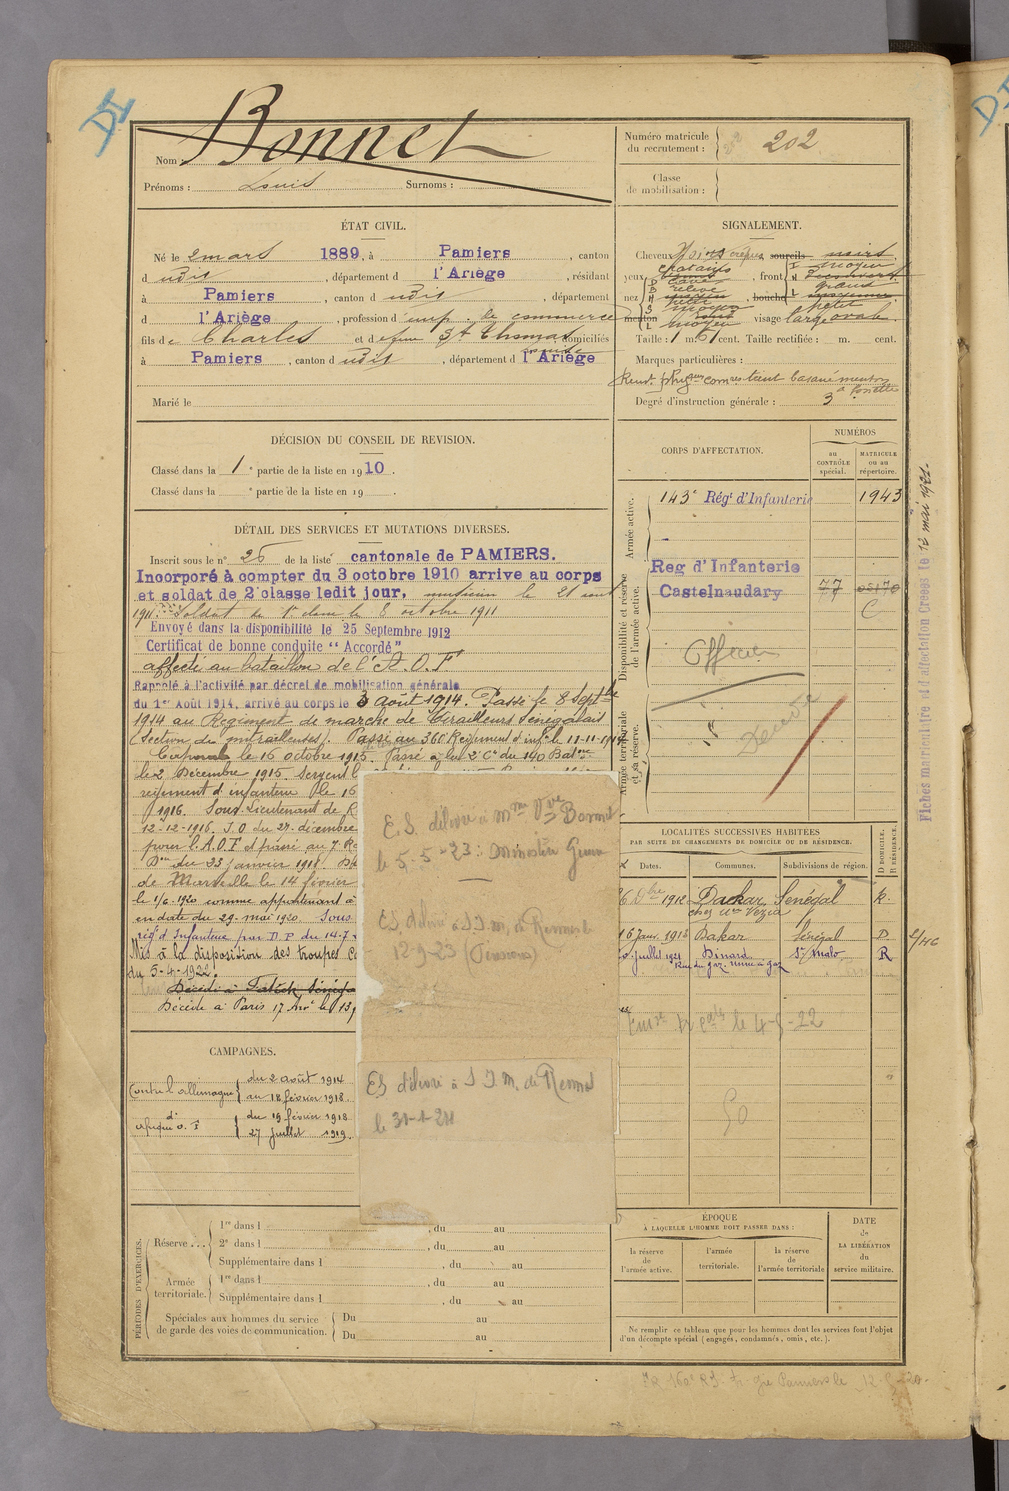 DI
Nom : Bonnet
Prénoms : Louis Surnoms :
Numéro matricule du recrutement : 202
Classe de mobilisation :
ÉTAT CIVIL.
Né le 2 mars 1889, à Pamiers, canton
dudit, département d l'Ariège, résidant
à Pamiers, canton dudit, département
d l'Ariège, profession d'emp. de commerce
fils de Charles et de feue St Thomas domiciliés
à Pamiers, canton dudit, département d l'Ariège
Marié le
SIGNALEMENT.
Cheveux Noirs crépus sourcils noirs
yeux chatains, front moyen
nez relevé, bouche grande
menton visage large ovale
Taille : 1 m. 61 cent. Taille rectifiée : m. cent.
Marques particulières :
teint basané menton à fossette
Degré d'instruction générale : 3
DÉCISION DU CONSEIL DE REVISION.
Classé dans la 1e partie de la liste en 1910.
Classé dans la e partie de la liste en 19 .
CORPS D'AFFECTATION.
NUMÉROS
au CONTRÔLE spécial.
MATRICULE ou au RÉPERTOIRE.
Armée active.
143e Régt d'Infanterie 1943
Disponibilité et réserve de l'armée active.
Reg d'Infanterie
Castelnaudary 77
C
Officier
Armée territoriale et sa réserve.
Décédé
DÉTAIL DES SERVICES ET MUTATIONS DIVERSES.
Inscrit sous le n° 25 de la liste cantonale de PAMIERS.
Incorporé à compter du 3 octobre 1910 arrive au corps
et soldat de 2e classe ledit jour, musicien le 21 août
1911. Soldat de 1e classe le 8 octobre 1911
Envoyé dans la disponibilité le 25 Septembre 1912
Certificat de bonne conduite "Accordé"
affecté au bataillon de l'A.O.F
Rappelé à l'activité par décret de mobilisation générale
du 1er Août 1914, arrivé au corps le 3 août 1914. Passé le 8 Septbre
1914 au Regiment de marche de Tirailleurs Sénégalais
(Section de mitrailleuses). Passé au 360 Regiment d'infie le 11-11-1914
Caporal le 16 octobre 1915. Passé à la 2e Cie du 140 Batne
le 2 Décembre 1915. Sergent l
regiment d'infanterie le 16
1916. Sous-Lieutenant de R
12-12-1916. J.O du 27 décembre
pour l'A.O.F et passé au 7. R
Bon du 23 janvier 1918.
de Marseille le 14 février
le 1/6-1920 comme appartenant à
en date du 29-mai 1920. Sous
régt d'Infanterie par D.P du 14-7-
Mis à la disposition des troupes Co
du 5-4-1922.
Décédé à Fatick Sénéga
Décédé à Paris 17 Arrt le 13
E.S. délivré à Mme Vve Bonnet
le 5-5-23 : Ministère Guerre
ES délivré à S.I.M. de Rennes le
12-9-23 (Pensions)
ES délivré à S I.M. de Rennes
le 31-1-24
LOCALITÉS SUCCESSIVES HABITÉES
PAR SUITE DE CHANGEMENTS DE DOMICILE OU DE RÉSIDENCE.
Dates. Communes. Subdivisions de région. D DOMICILE. R RÉSIDENCE.
6 Dbre 1912 Dackar Sénégal R.
chez Mme Vezia
16 Janv. 1913 Dakar Sénégal D
Juillet 1921 Dinard St Malo R
Rue du gaz usine à gaz
le 4-5-22
50
CAMPAGNES.
Contre l'allemagne du 2 août 1914
au 18 février 1918.
di
afrique o. F du 19 février 1918
27 juillet 1919
PÉRIODES D'EXERCICES.
Réserve... 1re dans l , du au
2e dans l , du au
Supplémentaire dans l , du au
Armée territoriale. 1re dans l , du au
Supplémentaire dans l , du au
Spéciales aux hommes du service de garde des voies de communication. Du au
Du au
ÉPOQUE
À LAQUELLE L'HOMME DOIT PASSER DANS :
la réserve de l'armée active.
l'armée territoriale.
la réserve de l'armée territoriale
DATE de LA LIBÉRATION du service militaire.
Ne remplir ce tableau que pour les hommes dont les services font l'objet
d'un décompte spécial (engagés, condamnés, omis, etc.).
Fiches matriculaire et d'affectation Créées le 12 mai 1921.